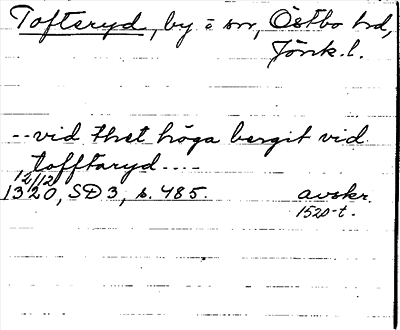 Tofteryd, by = sn, Östbo hd,
Jönk. l.
-- vid thet höga bergit vid
tofftaryd ----
12/12
1320, SD 3, s. 485. avskr.
1520-t.